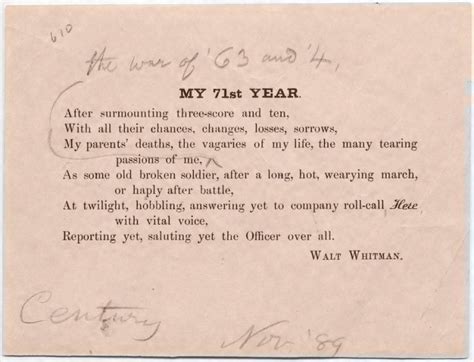 610
the war of '63 and '4,
MY 71st YEAR.
After surmounting three-score and ten,
With all their chances, changes, losses, sorrows,
My parents' deaths, the vagaries of my life, the many tearing
passions of me,
As some old broken soldier, after a long, hot, wearying march,
or haply after battle,
At twilight, hobbling, answering yet to company roll-call, Here,
with vital voice,
Reporting yet, saluting yet the Officer over all.
WALT WHITMAN.
Century
Nov '89